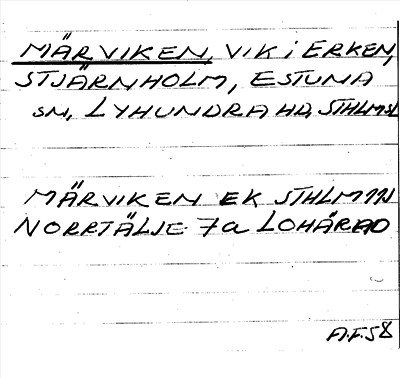 MÄRVIKEN, VIK i ERKEN,
STJÄRNHOLM, ESTUNA
SN, LYHUNDRA HD, STHLMSL
MÄRVIKEN EK STHLM 11J
NORRTÄLJE 7a LOHÄRAD
A.F.58